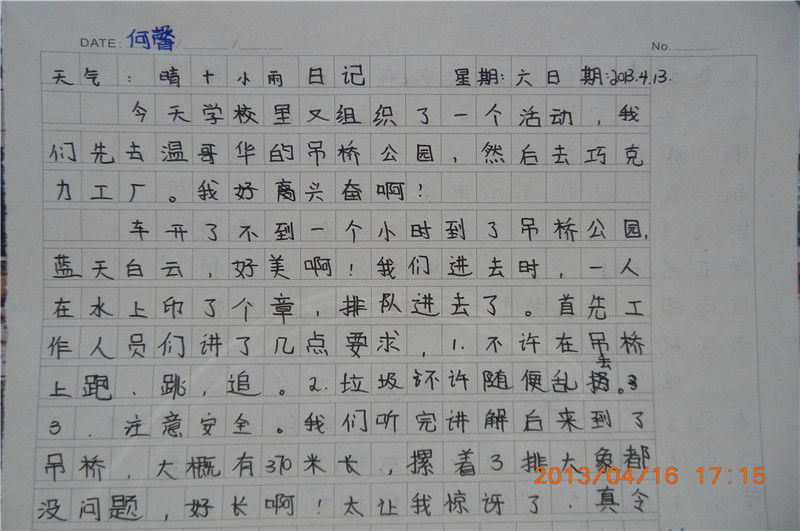 DATE: 何馨 / / No.
天气：晴十小雨日记 星期：六日期：2013.4.13.
今天学校里又组织了一个活动，我
们先去温哥华的吊桥公园，然后去巧克
力工厂。我好高兴奋啊！
车开了不到一个小时到了吊桥公园，
蓝天白云，好美啊！我们进去时，一人
在水上印了个章，排队进去了。首先工
作人员们讲了几点要求，1.不许在吊桥
上跑、跳，追。2.垃圾不许随便乱扔。3
去
3．注意安全。我们听完讲解后来到了
吊桥，大概有370米长，摞着3排大象都
没问题，好长啊！太让我惊讶了，真令
2013/04/16 17:15